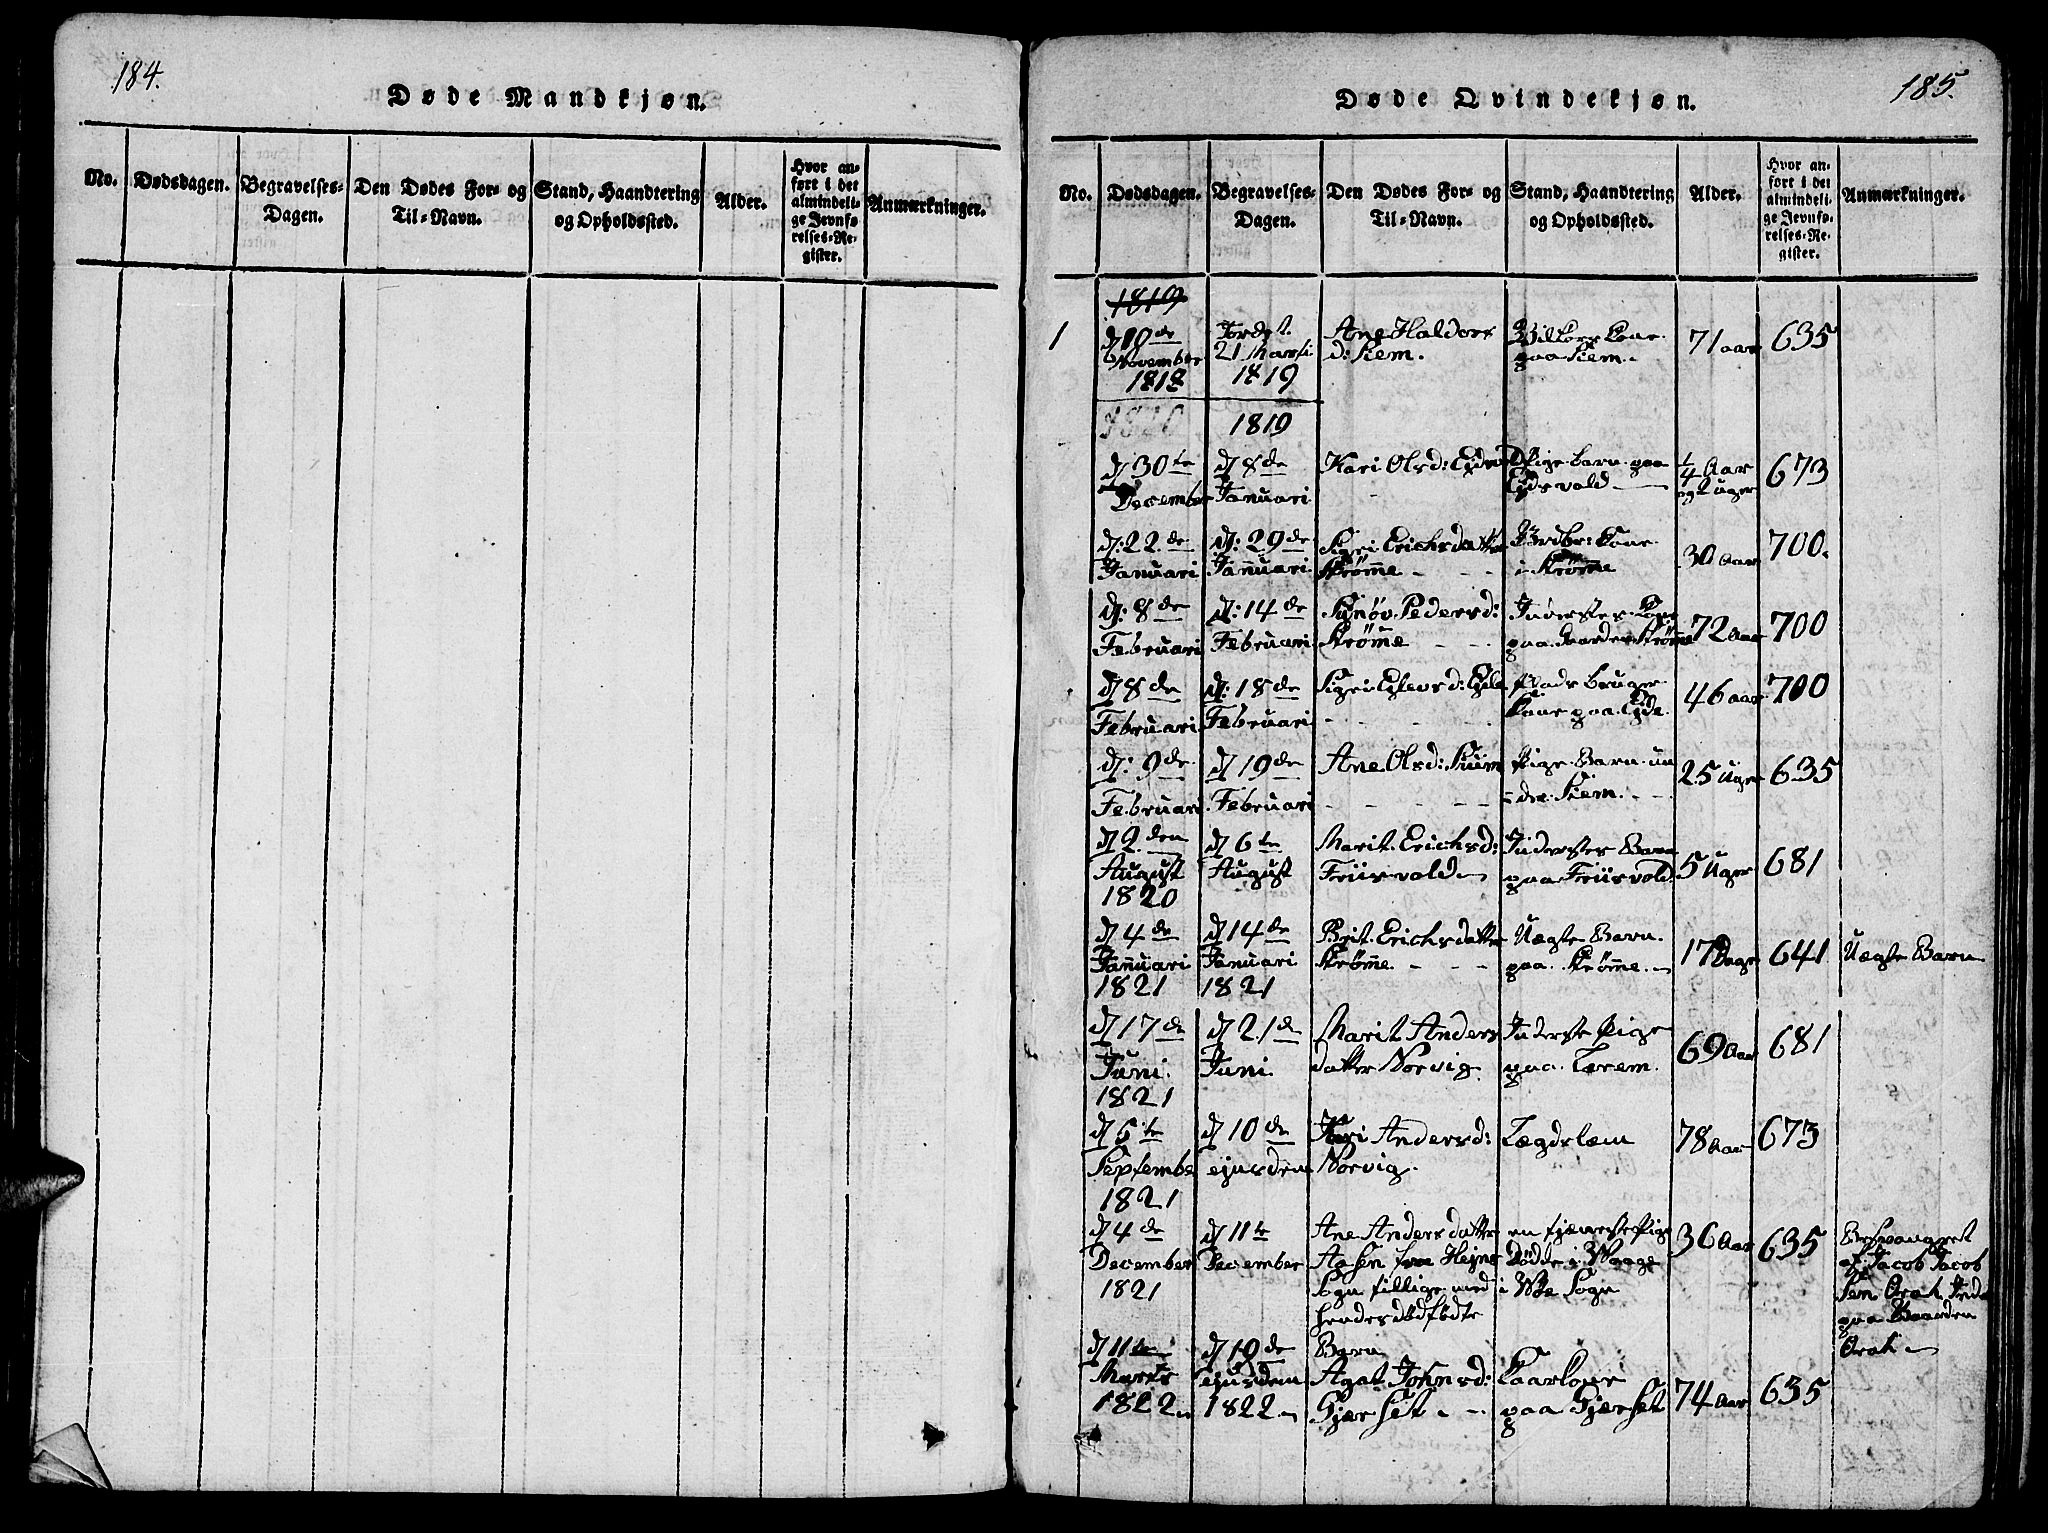 184.
Døde Mandkjøn.
No.
Dødsdagen.
Begravelses-
Dagen.
Den Dødes For- og
Til-Navn.
Stand, Haandtering
og Opholdssted.
Alder.
Hvor an-
ført i det
almindeli-
ge Jevnfø-
relses-Re-
gister.
Anmærkninger.
185.
Døde Qvindekjøn.
No.
Dødsdagen.
Begravelses-
Dagen.
Den Dødes For- og
Til-Navn.
Stand, Haandtering
og Opholdssted.
Alder.
Hvor an-
ført i det
almindeli-
ge Jevnfø-
relses-Re-
gister.
Anmærkninger.
1819
1
d 10de
November
1818
Jordet
21 Martii
1819
Ane Haldors
d: Siem.
Kone
paa Siem.
71 aar
635
1820
1819
d 30te
December
d 8de
Januari
Kari Olsd:
Pige barn paa
Eidsvold
1/4 Aar
og 2 uger
673
d: 22de
Januari
d: 29de
Januari
Sigri Erichsdatter
Strømme
Kone
i Strømme
30 aar
700.
d: 8de
Februari
d: 14de
Februari
Sünöv Pedersd:
Strømme
Inderstes Kone
paa Gaarden Strømme
72 aar
700
d 8de
Februari
d: 18de
Februari
Sigri
Plads bruger
Kone paa Eide.
46 aar
700
d: 9de
Februari
d 19de
Februari
Ane Olsd: Siem
Pige Barn un-
dre Siem.
25 Uger
635
d 2den
August
1820
d 6te
August
Marit Erichsd:
Friisvold
Inderstes Barn
paa Friisvold
5 Uger
681
d 4de
Januari
1821
d 14de
Januari
1821
Brit Erichsdatter
Strømme
Uægte Barn
paa Strømme
17 Dage
641
Uægte Barn
d 17de
Juni
1821
d 21de
Juni
Marit Anders
datter Norvig
Inderste Pige
paa Lerem.
69 Aar
681
d 5te
September
1821
d 10de
ejusdem
Kari Andersd:
Norvig.
Lægdslem
78 Aar
673
d 4de
December
1821
d 11te
December
Ane Andersdatter
Aasen fra Hejns
Sogn tillige med
hendes dødfødte
Barn
en tjeneste Pige
Dødde i Vaage
i Wæ Sogn
36 Aar
635
Besvangret
af Jacob Jacob
Sen Orah
paa Gaarden
Orah
d 11te
Marts
1822
d 19de
ejusdem
1822
Agat Johnsd:
Gjerset
Kaarkone
paa Gjerset
74 Aar
635